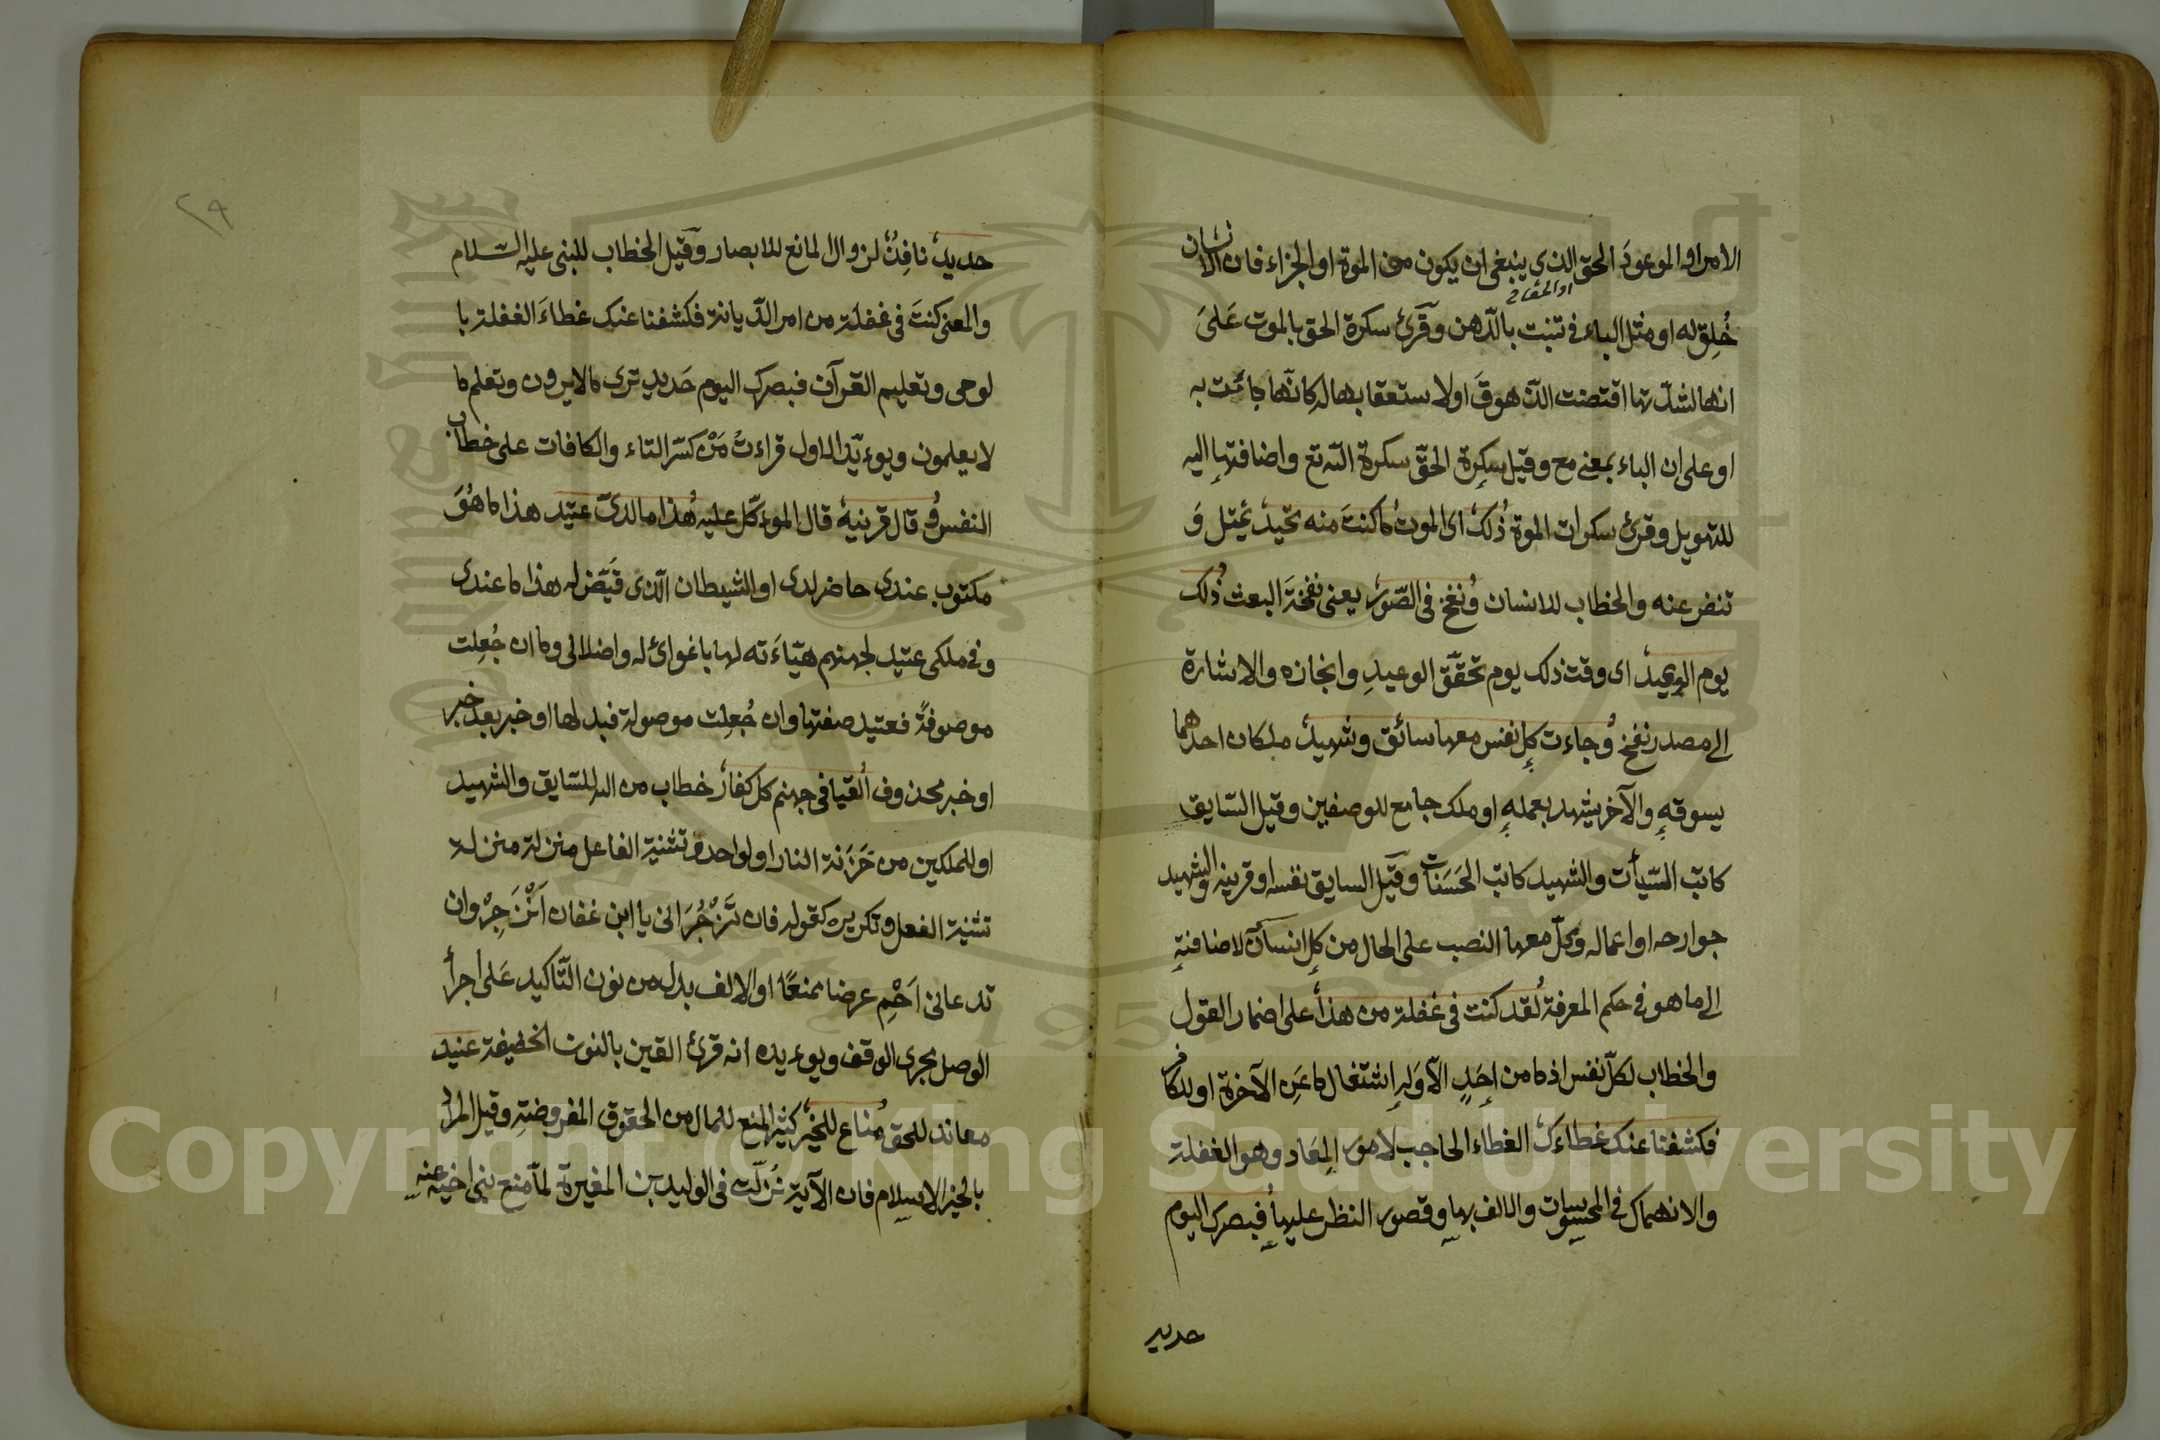 الامر او الموعود الحق الذى ينبغى ان يكون من الموة او الجزاء فان الانسان
خُلِق له او مثل الباء فى تنبت بالدّهن وقرئ سكرة الحق بالموت عَلىَ
انها لشدّتها اقتضت الزّهوقَ او لاستعقابها له كانّها جائت به
او على ان الباء بمعنى مع وقيل سكرة الحقّ سكرة الله تع واضافتها اليه
للتهويل وقرئ سكرات الموة ذُلك اى الموت ما كنتَ منه تحيد تميل وَ
تنفر عنه والخطاب للانسان وُنفخ فى الصّور يعنى نفخةَ البعث ذُلك
يوم الوعيد اى وقت ذلك يوم تحقّق الوعيدِ وانجازه والاشارة
الى مصدر نفخ وُجاءت كل نفس معها سائق وشهيد ملكان احدهما
يسوقه والآخر يشهد بعمله او ملك جامع للوصفين وقيل السّايق
كاتب السّيأت والشهيد كاتب الحَسَنات وقيل السايق نفسه او قرينه والشهيد
جوارحه او اعماله ومحلّ معها النصب على الحال من كل انسان لاضافته
الى ما هو فى حكم المعرفة لُقد كنت فى غفلة من هذا على اضمار القول
والخطاب لكلّ نفس اذ ما من اَحَدٍ الّا وله اشتغال ما عَن الآخرة او للكافر
فكشفنا عنك غطاءك الغطاء الحاجب لامور المعَاد وهو الغفلة
والانهماك فى المحسوسات والالف بها وقصور النظر عليها فُبصرك اليوم
حديد
حديد نافِذ لزوال المانع للابصار وقيل الخطاب للنبى عليه السّلام
والمعنى كنتَ فى غفلة من امر الدّيانة فكشفنا عنك غطاءَ الغفلة با
لوحى وتعليم القرآن فبصرك اليوم حَديد ترى ما لا يرون وتعلم ما
لا يعلمون ويوءيّد الاول قراءت مَنْ كسَر التاء والكافات على خطاب
النفس وُقال قرينه قال الموءكّل عليه هُذا ما لدىّ عتيد هذا ما هُوَ
مكتوب عندى حاضر لدى او الشيطان الّذى قَيّض له هذا ما عندى
وفى ملكى عتيد لجهنم هيّاءَته لها باغوائ له واضلالى وما ان جُعِلت
موصوفةً فعتيد صفتها وان جُعِلت موصولة فبدلها او خبر بعد خبر
او خبر محذوف اُلقيا فى جهنم كل كفار خطاب من الله للسّايق والشهيد
او للملكين من خَزَنة النار او لواحد وتثنية الفاعل منزلة منزلة
تثنية الفعل وتكريره كقوله فان تَزْجُرَانى يا ابن عفان اَنْزَجِرْ وان
تدعانى اَحْمِ عرضا ممنعًا او الالف بدل من نون التّاكيد عَلى اجرأ
الوصل مجرى الوقف ويوءيده انه قرئ القين بالنون الخفيفة عنيد
معاند للحق مُناع للخير كثير المنع للمال من الحقوق المفروضة وقيل المراد
بالخير الاسلام فان الآية نُزلّت فى الوليد بن المغيرة لمّا منع بنى اخيه عنه